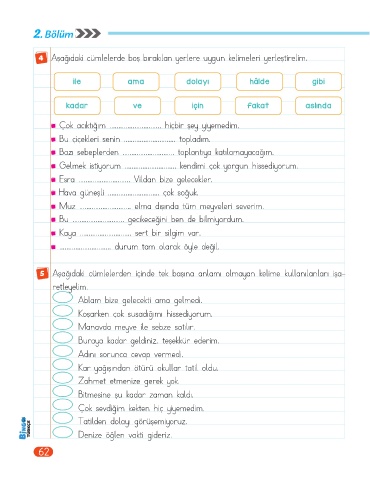 2. Bölüm
4 Aşağıdaki cümlelerde boş bırakılan yerlere uygun kelimeleri yerleştirelim.
ile ama dolayı hâlde gibi
kadar ve için fakat aslında
Çok acıktığım ........................ hiçbir şey yiyemedim.
Bu çiçekleri senin ........................ topladım.
Bazı sebeplerden ........................ toplantıya katılamayacağım.
Gelmek istiyorum ........................ kendimi çok yorgun hissediyorum.
Esra ........................ Vildan bize gelecekler.
Hava güneşli ........................ çok soğuk.
Muz ........................ elma dışında tüm meyveleri severim.
Bu ........................ gecikeceğini ben de bilmiyordum.
Kaya ........................ sert bir silgim var.
........................ durum tam olarak öyle değil.
5 Aşağıdaki cümlelerden içinde tek başına anlamı olmayan kelime kullanılanları işa-
retleyelim.
Ablam bize gelecekti ama gelmedi.
Koşarken çok susadığımı hissediyorum.
Manavda meyve ile sebze satılır.
Buraya kadar geldiniz, teşekkür ederim.
Adını sorunca cevap vermedi.
Kar yağışından ötürü okullar tatil oldu.
Zahmet etmenize gerek yok.
Bitmesine şu kadar zaman kaldı.
Çok sevdiğim kekten hiç yiyemedim.
Tatilden dolayı görüşemiyoruz.
Denize öğlen vakti gideriz.
62